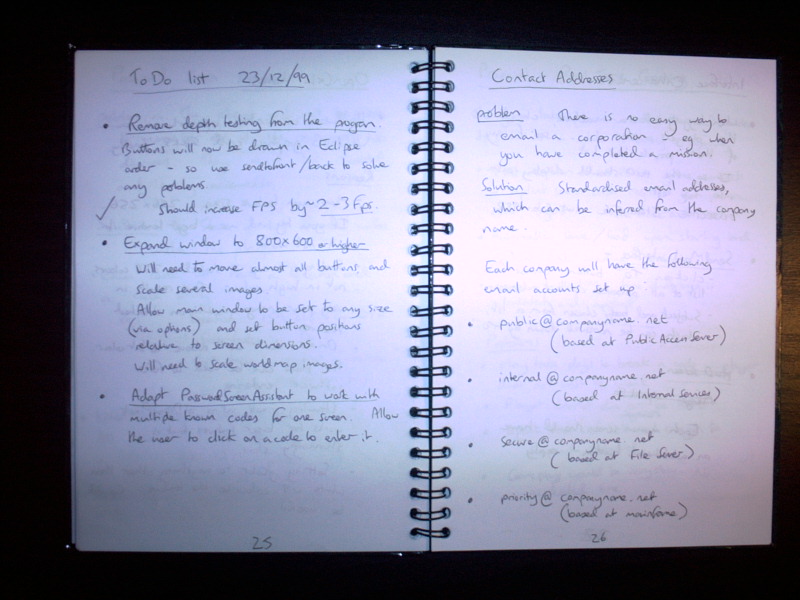 To Do list 23/12/99
• Remove depth testing from the program.
Buttons will now be drawn in Eclipse
order - so use sendtofront/back to solve
any problems
✓ Should increase FPS by ~ 2-3 Fps.
• Expand window to 800x600 or higher
Will need to move almost all buttons, and
scale several images.
Allow main window to be set to any size
(via options) and set button positions
relative to screen dimensions.
Will need to scale worldmap images.
• Adapt PasswordScreenAssistant to work with
multiple known codes for one screen. Allow
the user to click on a code to enter it.
25
Contact Addresses
problem There is no easy way to
email a corporation - eg when
you have completed a mission.
Solution Standardised email addresses,
which can be infered from the company
name.
Each company will have the following
email accounts set up :
• public@companyname.net
(based at Public Access Server)
• internal@companyname.net
(based at Internal Services)
• secure@companyname.net
(based at File Server)
• priority@companyname.net
(based at mainframe)
26